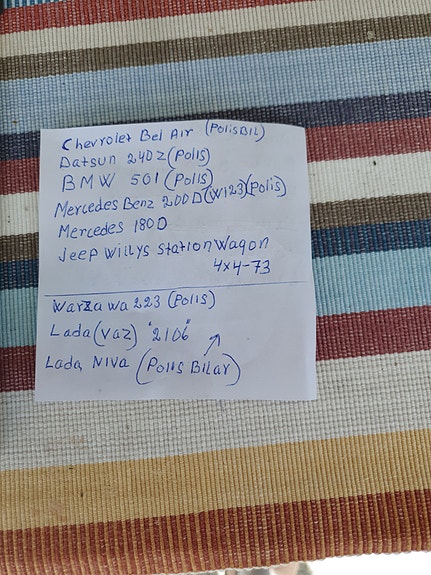 Chevrolet Bel Air (PolisBIL)
Datsun 240Z (Polis)
BMW 501 (Polis)
Mercedes Benz 200D (W123) (Polis)
Mercedes 180D
Jeep Willys Station Wagon
4x4-73
Warzawa 223 (Polis)
Lada (Vaz) "2106"
Lada Niva (Polis Bilar)